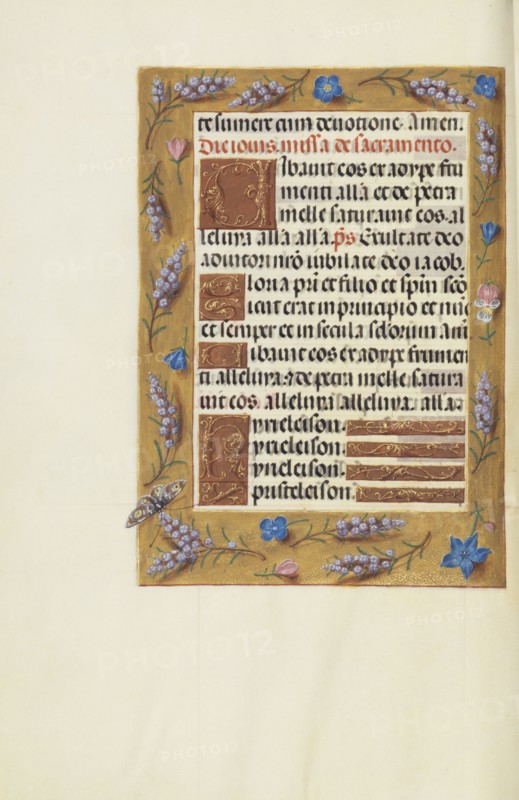 te sumere cum deuotione. Amen.
Die iouis. missa de sacramento.
Cibauit eos ex adype fru
menti alla et de petra
melle saturauit eos. al
leluya alla alla. ps Exultate deo
adiutori nro iubilate deo iacob.
Gloria pri et filio et spiri sco
Sicut erat in principio et nuc
et semper et in secula sclorum am
Cibauit eos ex adype frumen
ti alleluya. et de petra melle satura
uit eos. alleluya alleluya. alla.
Kyrieleison.
kyrieleison.
kyrieleison.
Xpristeleison.
PHOTO12